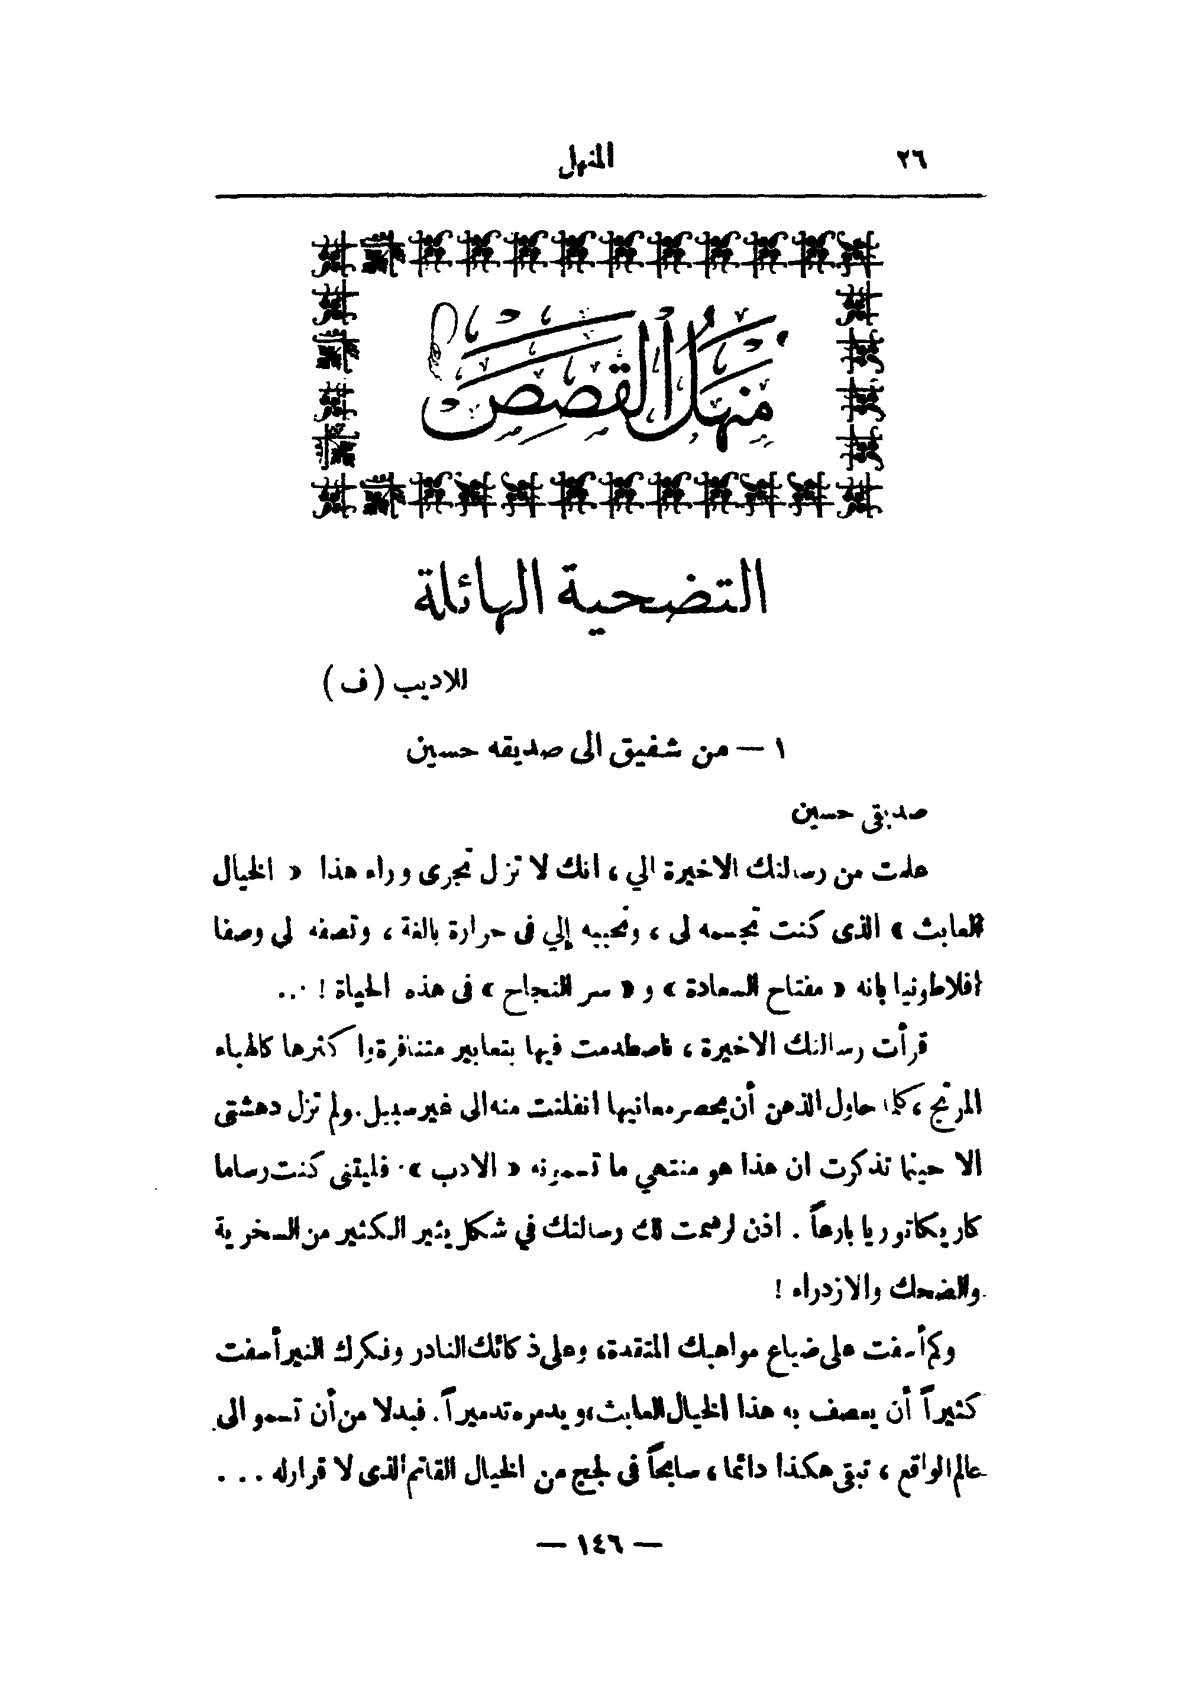 ٢٦
المنهل
منهل القصص
التضحية الهائلة
للاديب (ف)
١ — من شفيق الى صديقه حسين
صديقى حسين
علمت من رسالتك الاخيرة الي ، انك لا تزل تجرى وراء هذا « الخيال
العابث » الذى كنت تجسمه لى ، وتحببه إلي فى حرارة بالغة ، وتصفه لي وصفا
افلاطونيا بانه « مفتاح السعادة » و « سر النجاح » فى هذه الحياة ! ...
قرأت رسالتك الاخيرة ، فاصطدمت فيها بتعابير متنافرة واكثرها كالهباء
المرتج ، كلما حاول الذهن أن يحصر معانيها انفلتت منه الى غير سبيل. ولم تزل دهشتى
الا حينما تذكرت ان هذا هو منتهي ما تسمونه « الادب » . فليتنى كنت رساما
كاريكاتوريا بارعاً . اذن لرسمت لك رسالتك في شكل يثير الكثير من السخرية
والضحك والازدراء !
وكم أسفت على ضياع مواهبك المتقدة، وعلى ذكائك النادر وفكرك النير أسفت
كثيراً أن يعصف به هذا الخيال العابث، ويدمره تدميراً . فبدلا من أن تسمو الى
عالم الواقع ، تبقى هكذا دائما ، سابحاً فى لجج من الخيال القاتم الذى لا قرار له ...
— ١٤٦ —